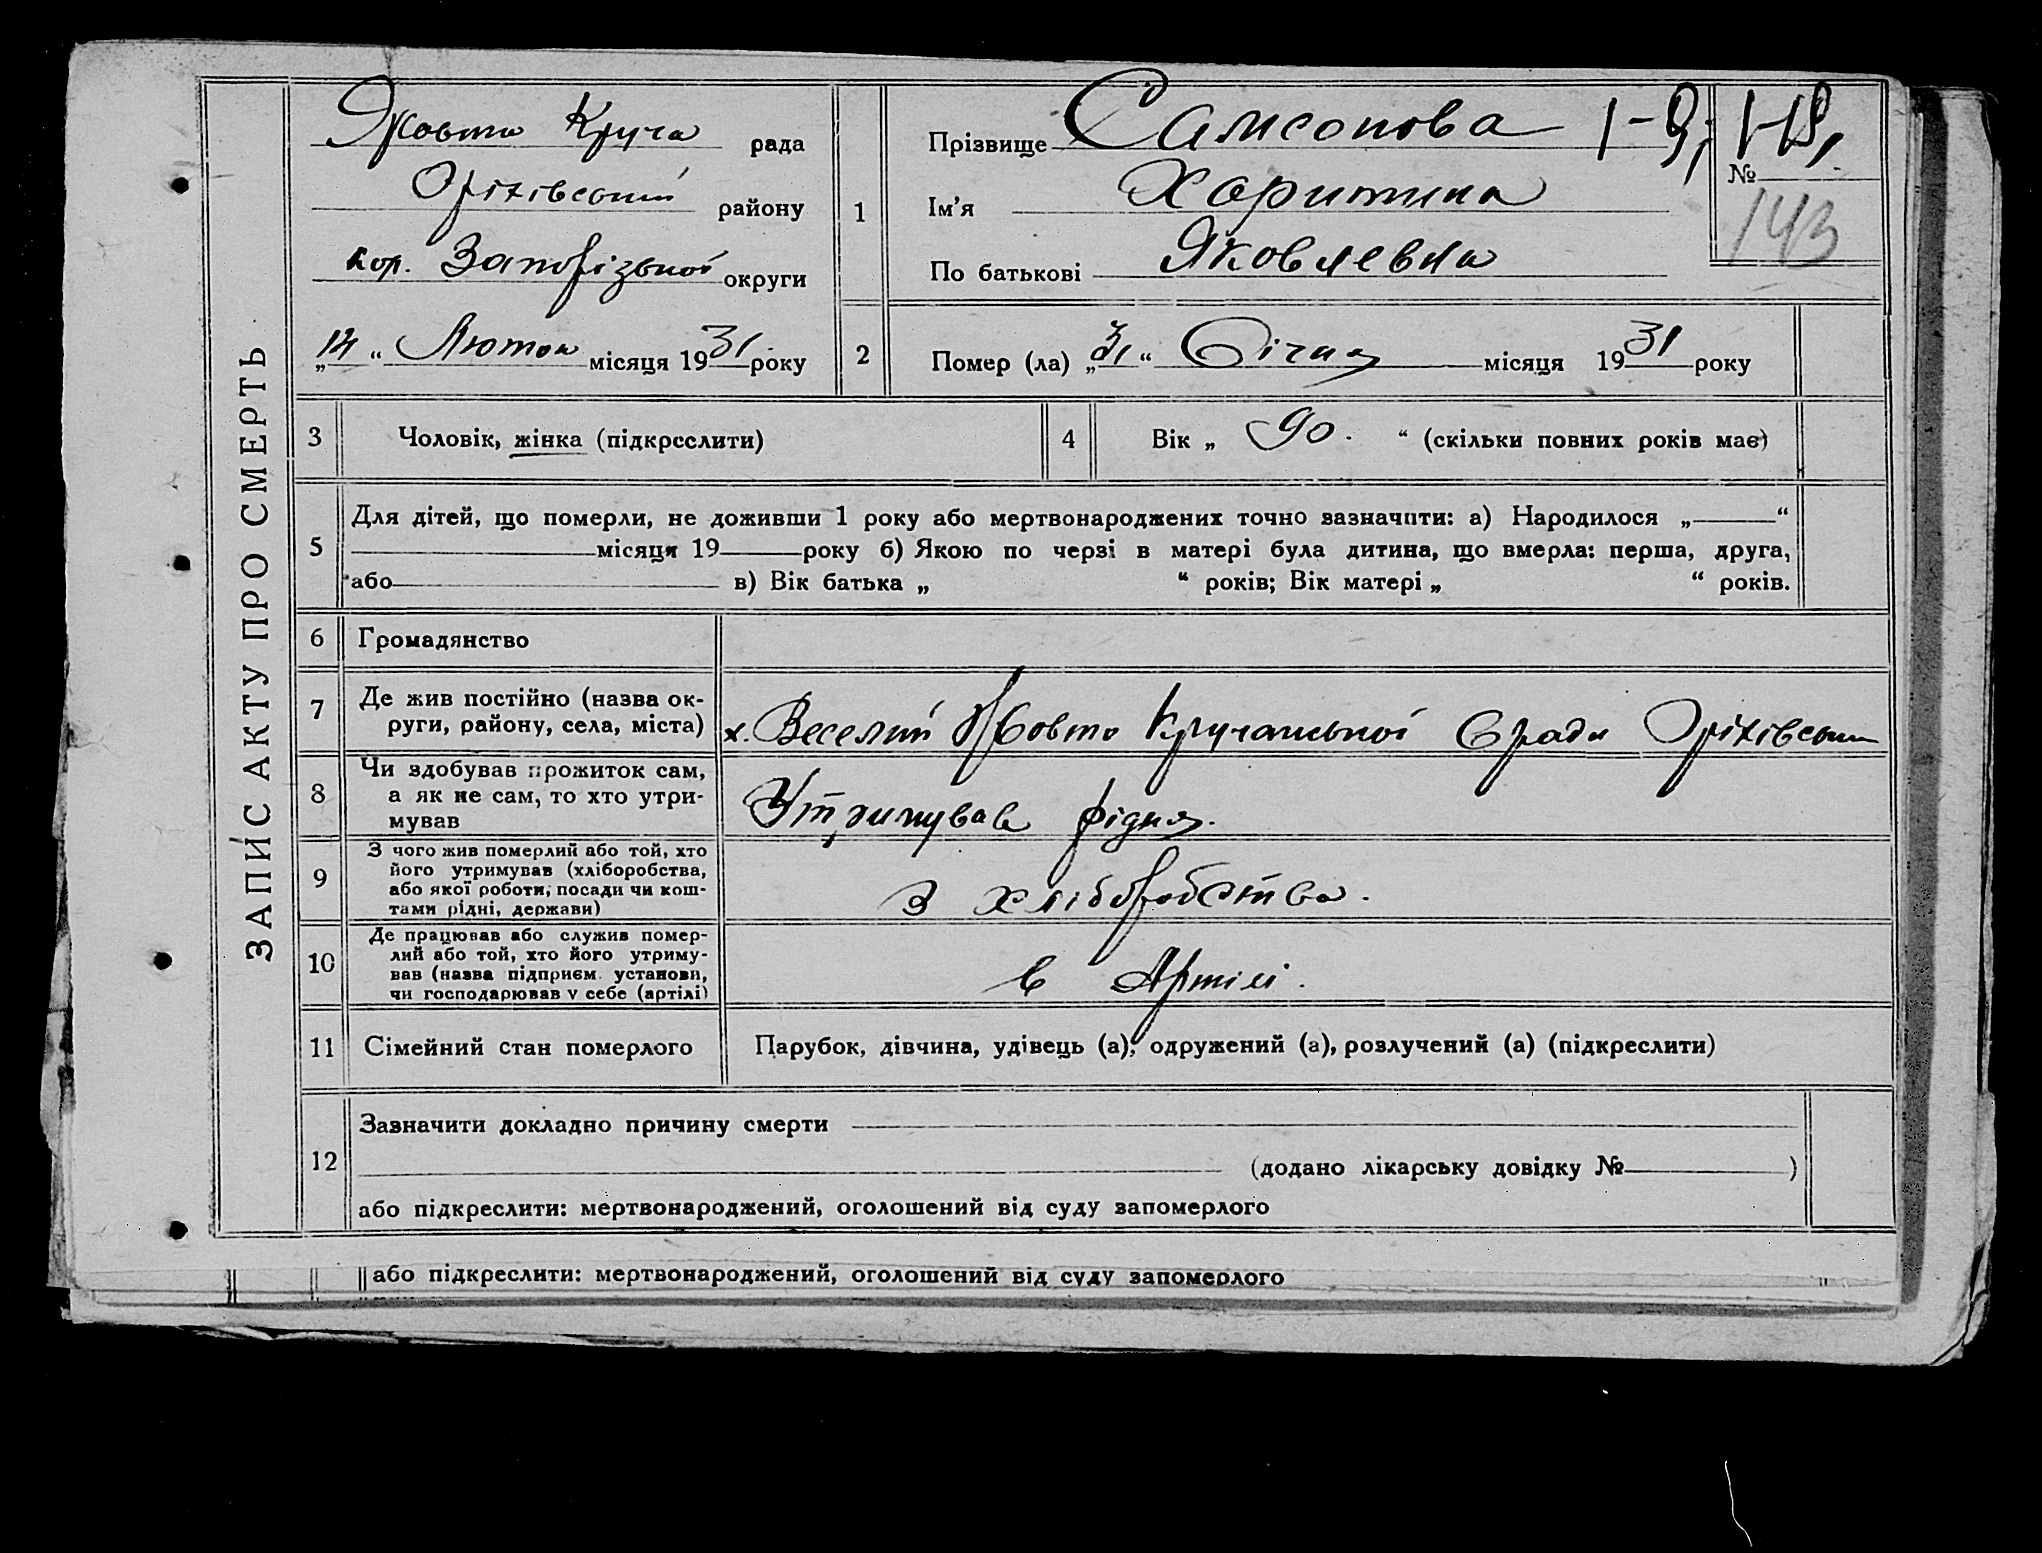 ЗАПИС АКТУ ПРО СМЕРТЬ
Жовта Круча рада
Оріхівський району
кор. Запорізької округи
„14“ Лютого місяця 1931 року
1
Прізвище Самсонова 1-9; 1-19,
Ім’я Харитина
По батькові Яковлевна
№
143
2 Помер (ла) „31“ Січня місяця 1931 року
3 Чоловік, жінка (підкреслити)
4 Вік „90.“ (скільки повних років має)
5
Для дітей, що померли, не доживши 1 року або мертвонароджених точно зазначити: а) Народилося „ “
місяця 19 року б) Якою по черзі в матері була дитина, що вмерла: перша, друга,
або в) Вік батька „ “ років; Вік матері „ “ років.
6 Громадянство
7 Де жив постійно (назва ок-
руги, району, села, міста)
х. Веселий Жовто Кручанської с ради Оріхівськ
8 Чи здобував прожиток сам,
а як не сам, то хто утри-
мував
Утримував рідня.
9 З чого жив померлий або той, хто
його утримував (хліборобства,
або якої роботи, посади чи кош-
тами рідні, держави)
З хліборобства.
10 Де працював або служив помер-
лий або той, хто його утриму-
вав (назва підприєм. установи,
чи господарював у себе (артілі)
в Артілі.
11 Сімейний стан померлого
Парубок, дівчина, удівець (а), одружений (а), розлучений (а) (підкреслити)
12
Зазначити докладно причину смерти
(додано лікарську довідку № )
або підкреслити: мертвонароджений, оголошений від суду запомерлого
або підкреслити: мертвонароджений, оголошений від суду запомерлого